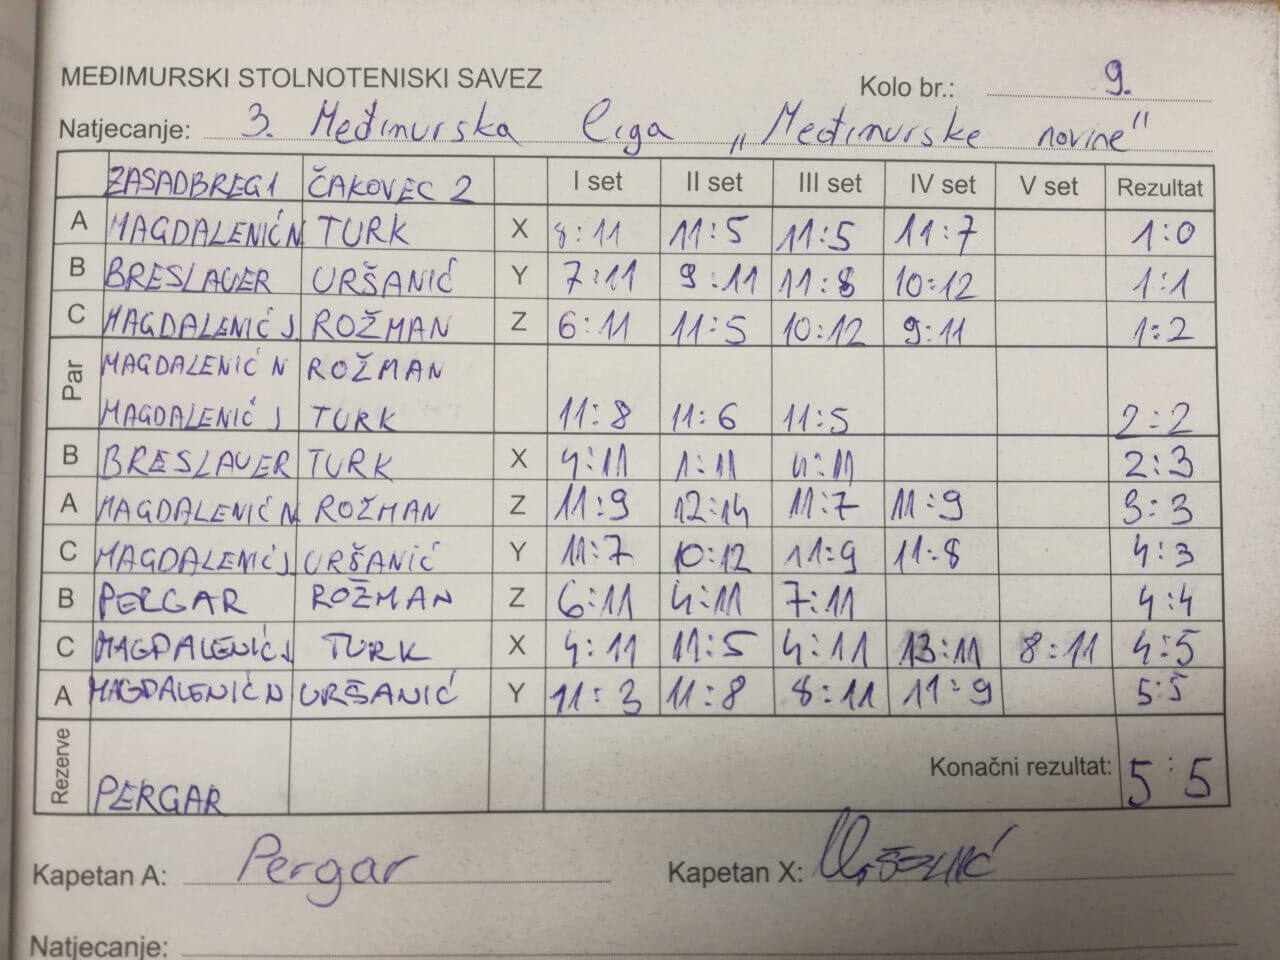 MEĐIMURSKI STOLNOTENISKI SAVEZ Kolo br.: 9.
Natjecanje: 3. Međimurska liga „Međimurske novine"
ZASADBREG 1 ČAKOVEC 2 I set II set III set IV set V set Rezultat
A MAGDALENIĆ N TURK X 8:11 11:5 11:5 11:7 1:0
B BRESLAUER URŠANIĆ Y 7:11 9:11 11:8 10:12 1:1
C MAGDALENIĆ J ROŽMAN Z 6:11 11:5 10:12 9:11 1:2
Par MAGDALENIĆ N ROŽMAN
MAGDALENIĆ J TURK 11:8 11:6 11:5 2:2
B BRESLAUER TURK X 4:11 1:11 4:11 2:3
A MAGDALENIĆ N ROŽMAN Z 11:9 12:14 11:7 11:9 3:3
C MAGDALENIĆ J URŠANIĆ Y 11:7 10:12 11:9 11:8 4:3
B PERGAR ROŽMAN Z 6:11 4:11 7:11 4:4
C MAGDALENIĆ J TURK X 4:11 11:5 4:11 13:11 8:11 4:5
A MAGDALENIĆ N URŠANIĆ Y 11:3 11:8 8:11 11:9 5:5
Rezerve PERGAR Konačni rezultat: 5:5
Kapetan A: Pergar Kapetan X: Uršanić
Natjecanje: